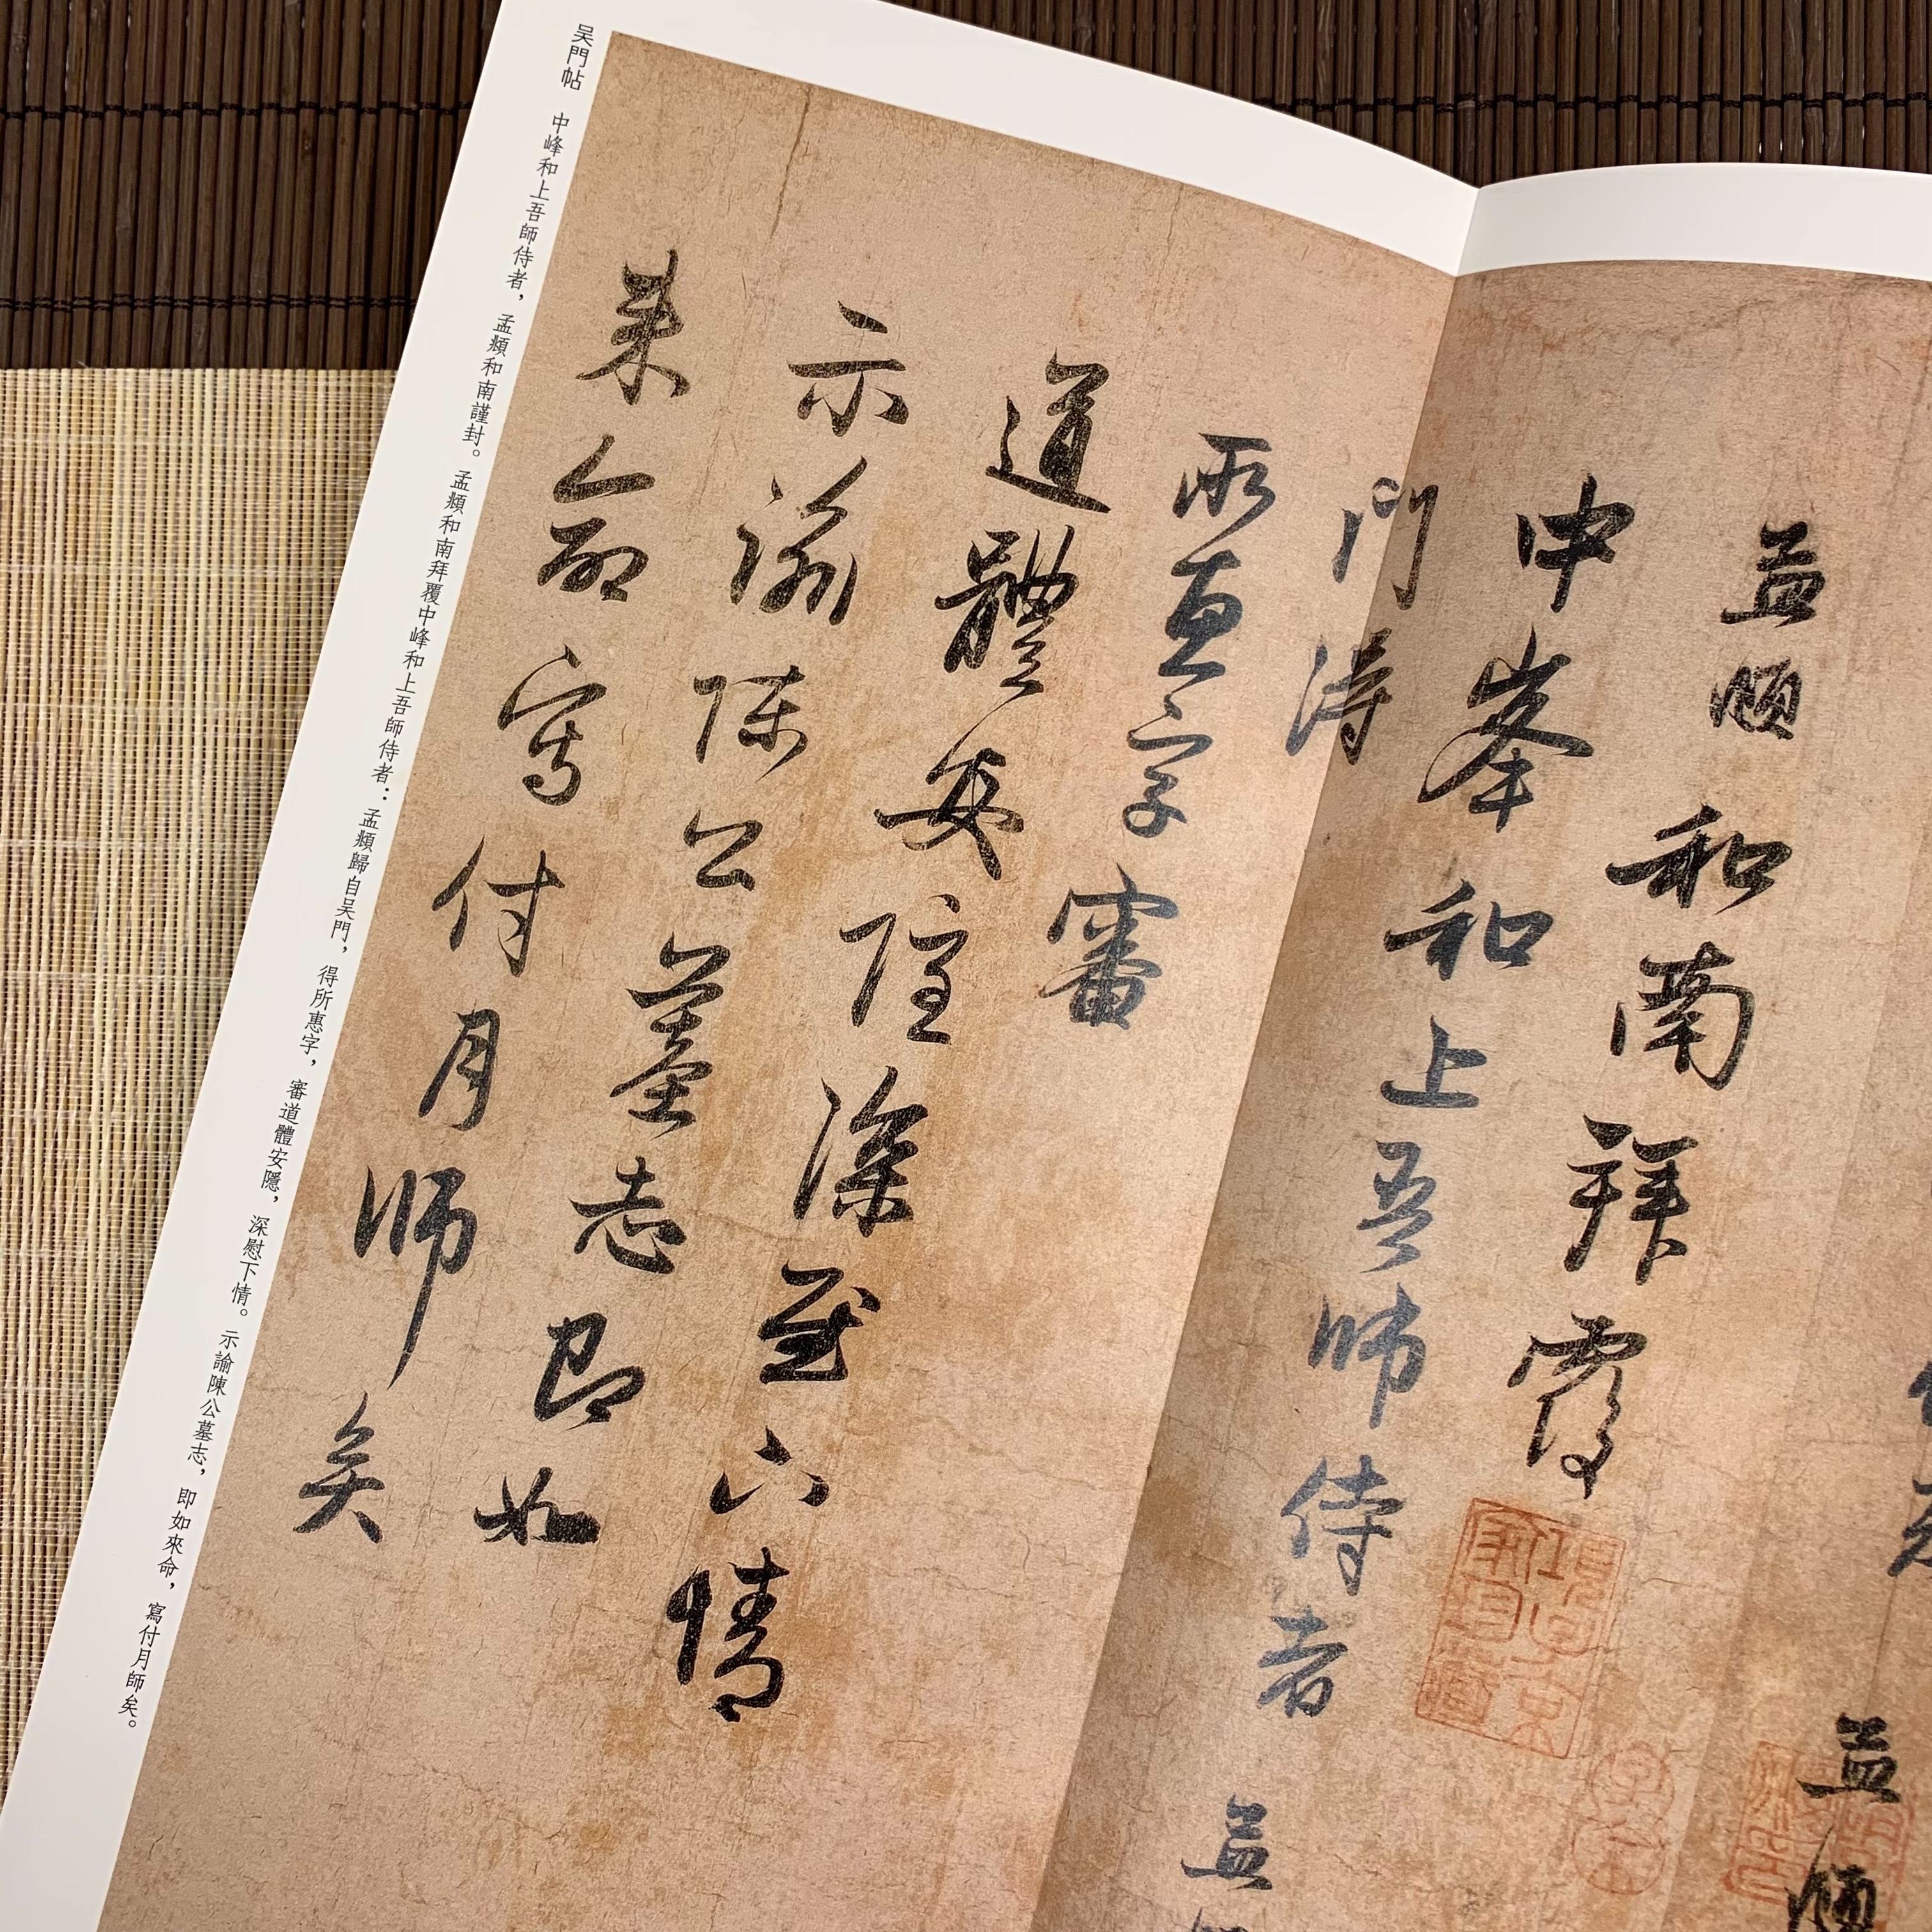 孟頫
孟頫和南拜覆
中峯和上吾師侍者孟
門得
所惠字審
道體安隱深慰下情
示諭陳公墓志即如
来命寫付月師矣
吳門帖　中峰和上吾師侍者，孟頫和南謹封。孟頫和南拜覆中峰和上吾師侍者：孟頫歸自吳門，得所惠字，審道體安隱，深慰下情。示諭陳公墓志，即如來命，寫付月師矣。